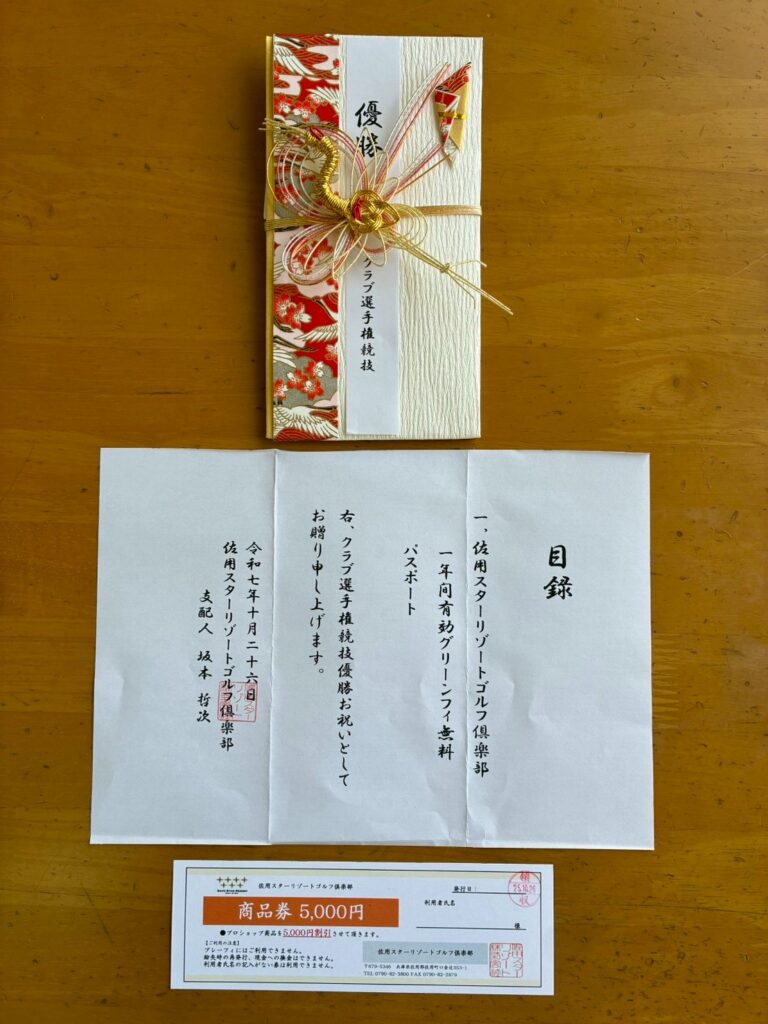 優勝
クラブ選手権競技
目録
一、佐用スターリゾートゴルフ倶楽部
一年間有効グリーンフィ無料
パスポート
右、クラブ選手権競技優勝お祝いとして
お贈り申し上げます。
令和七年十月二十六日
佐用スターリゾートゴルフ倶楽部
支配人 坂本 哲次
佐用スターリゾートゴルフ倶楽部
商品券 5,000円
●プロショップ商品を5,000円割引させて頂きます。
【ご利用の注意】
プレーフィにはご利用できません。
紛失時の再発行、現金への換金はできません。
利用者氏名の記入がない券は利用できません。
発行日：
領収
25.10.26
利用者氏名
様
佐用スターリゾートゴルフ倶楽部
〒679-5346 兵庫県佐用郡佐用町口金近353-1
TEL 0790-82-3800 FAX 0790-82-2879